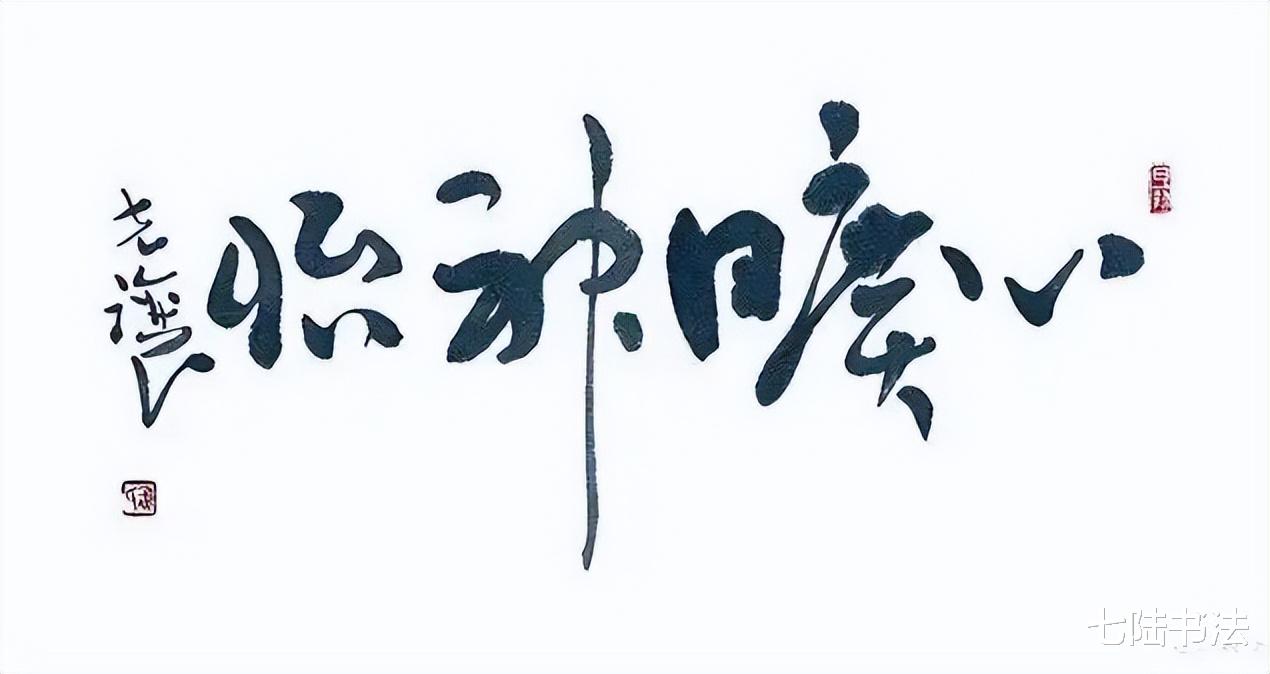 心曠神怡
七陆书法